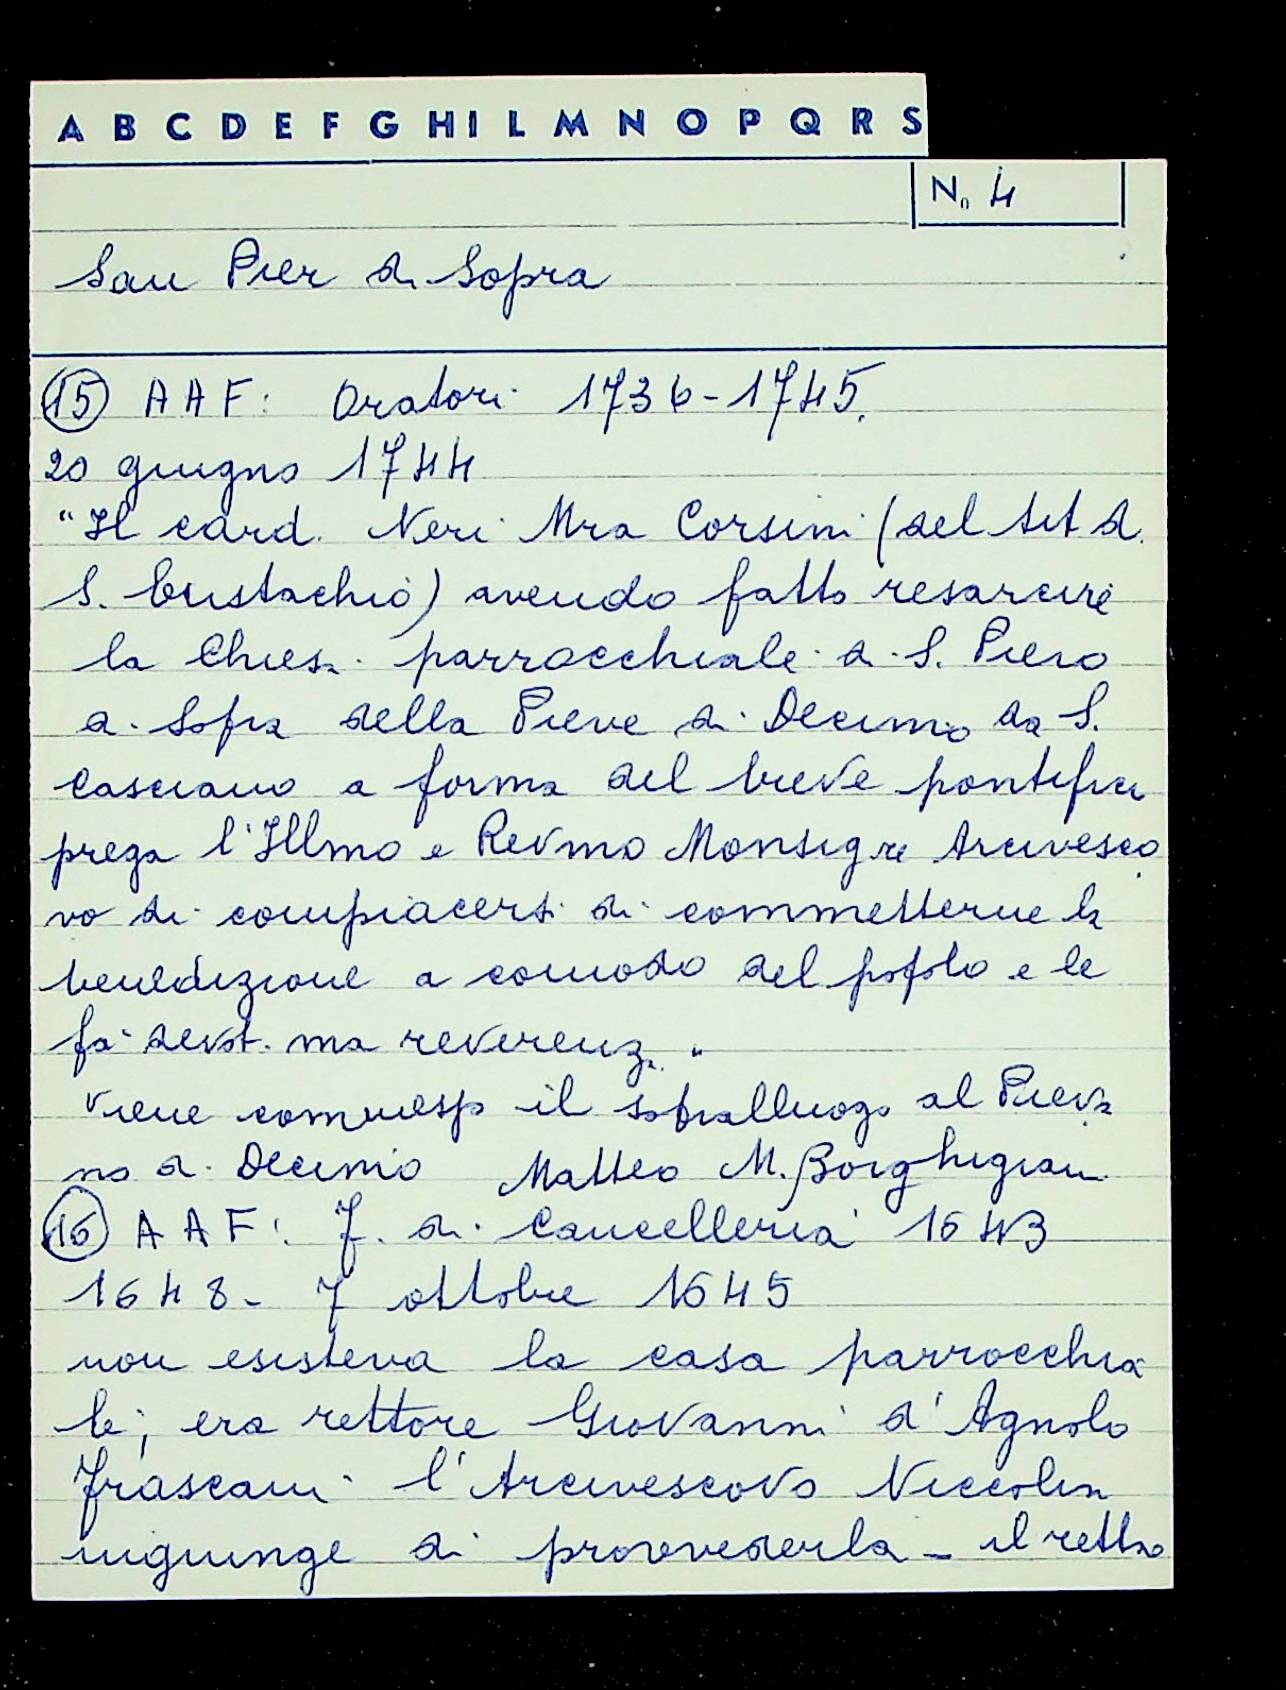 A B C D E F G H I L M N O P Q R S
N. 4
San Pier di Sopra
15 AAF: Oratori 1736-1745.
20 giugno 1744
"Il card. Neri Mra Corsini (del tit di
S. Eustachio) avendo fatto resarcire
la Chiesa parrocchiale di S. Piero
di Sopra della Pieve di Decimo da S.
Casciano a forma del breve pontificio
prega l'Illmo e Revmo Monsigre Arcivesco
vo di compiacersi di commetterne la
benedizione a comodo del popolo e le
fa devot.ma reverenza"
viene commesso il sopralluogo al Pieva
no di Decimo Matteo M. Borghigiani
16 AAF: F. di Cancelleria 1643
1648- 7 ottobre 1645
non esisteva la casa parrocchia
le; era rettore Giovanni d'Agnolo
Frascani l'Arcivescovo Niccolini
ingiunge di provvederla - il rettore